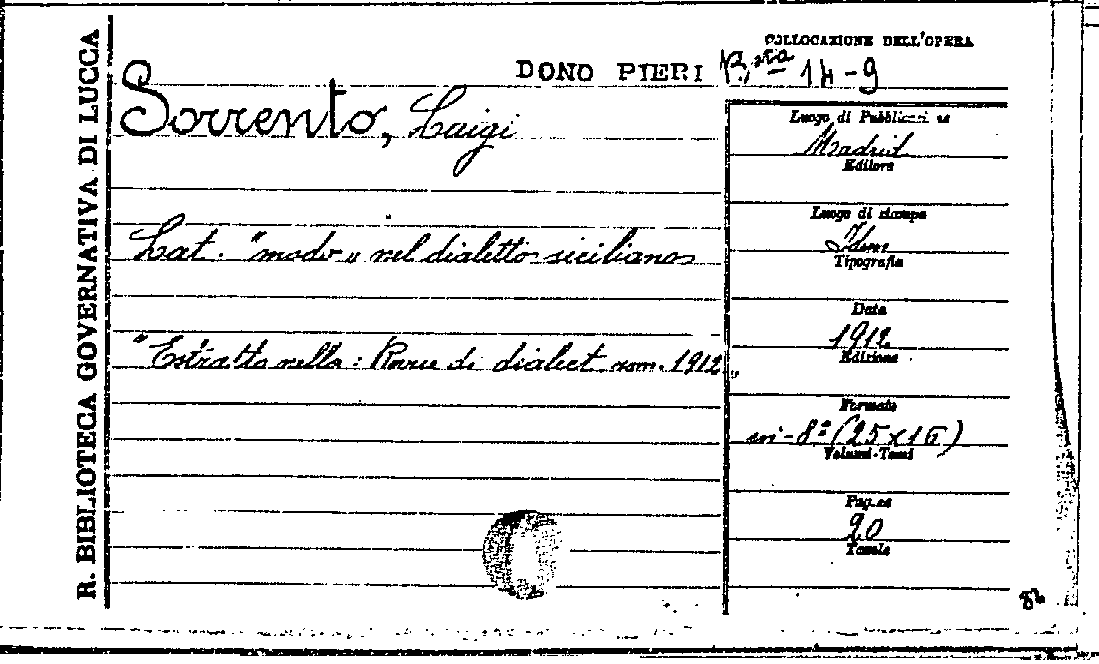 R. BIBLIOTECA GOVERNATIVA DI LUCCA
COLLOCAZIONE DELL'OPERA
DONO PIERI B.sta 14-9
Sorrento, Luigi
Lat. "modo" nel dialetto siciliano
"Estratto nella: Revue de dialect rom. 1912"
Luogo di Pubblicazi es
Madrid
Editore
Luogo di stampa
Idem
Tipografia
Data
1912
Edizione
Formato
in-8° (25x16)
Volumi-Tomi
Pag.es
20
Tavole